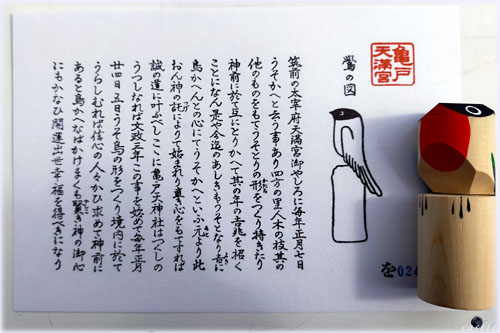 亀戸
天満宮
鷽の図
筑前の太宰府天満宮御やしろに毎年正月七日
うそかへと云う事あり四方の里人木の枝其の
他のものをもてうそどりの形をつくり持きたり
神前に於て互にとりかへて其の年の吉兆を招く
ことになん是や今迄のあしきもうそとなり吉に
鳥かへんとの心にてうそかへといふ元より此
おん神の託によりて始まれり真心をもてすれば
誠の道に叶ふべしここに亀戸天神社はつしの
うつしなれば文政三年この事を始めて毎年正月
廿四日五日うそ鳥の形をつくり境内に於て
うらしむれば信心の人々かひ求めて神前に
あると鳥かへなばかけまくも賢き神の御心
にもかなひ開運出世幸福を得べきになり
を024